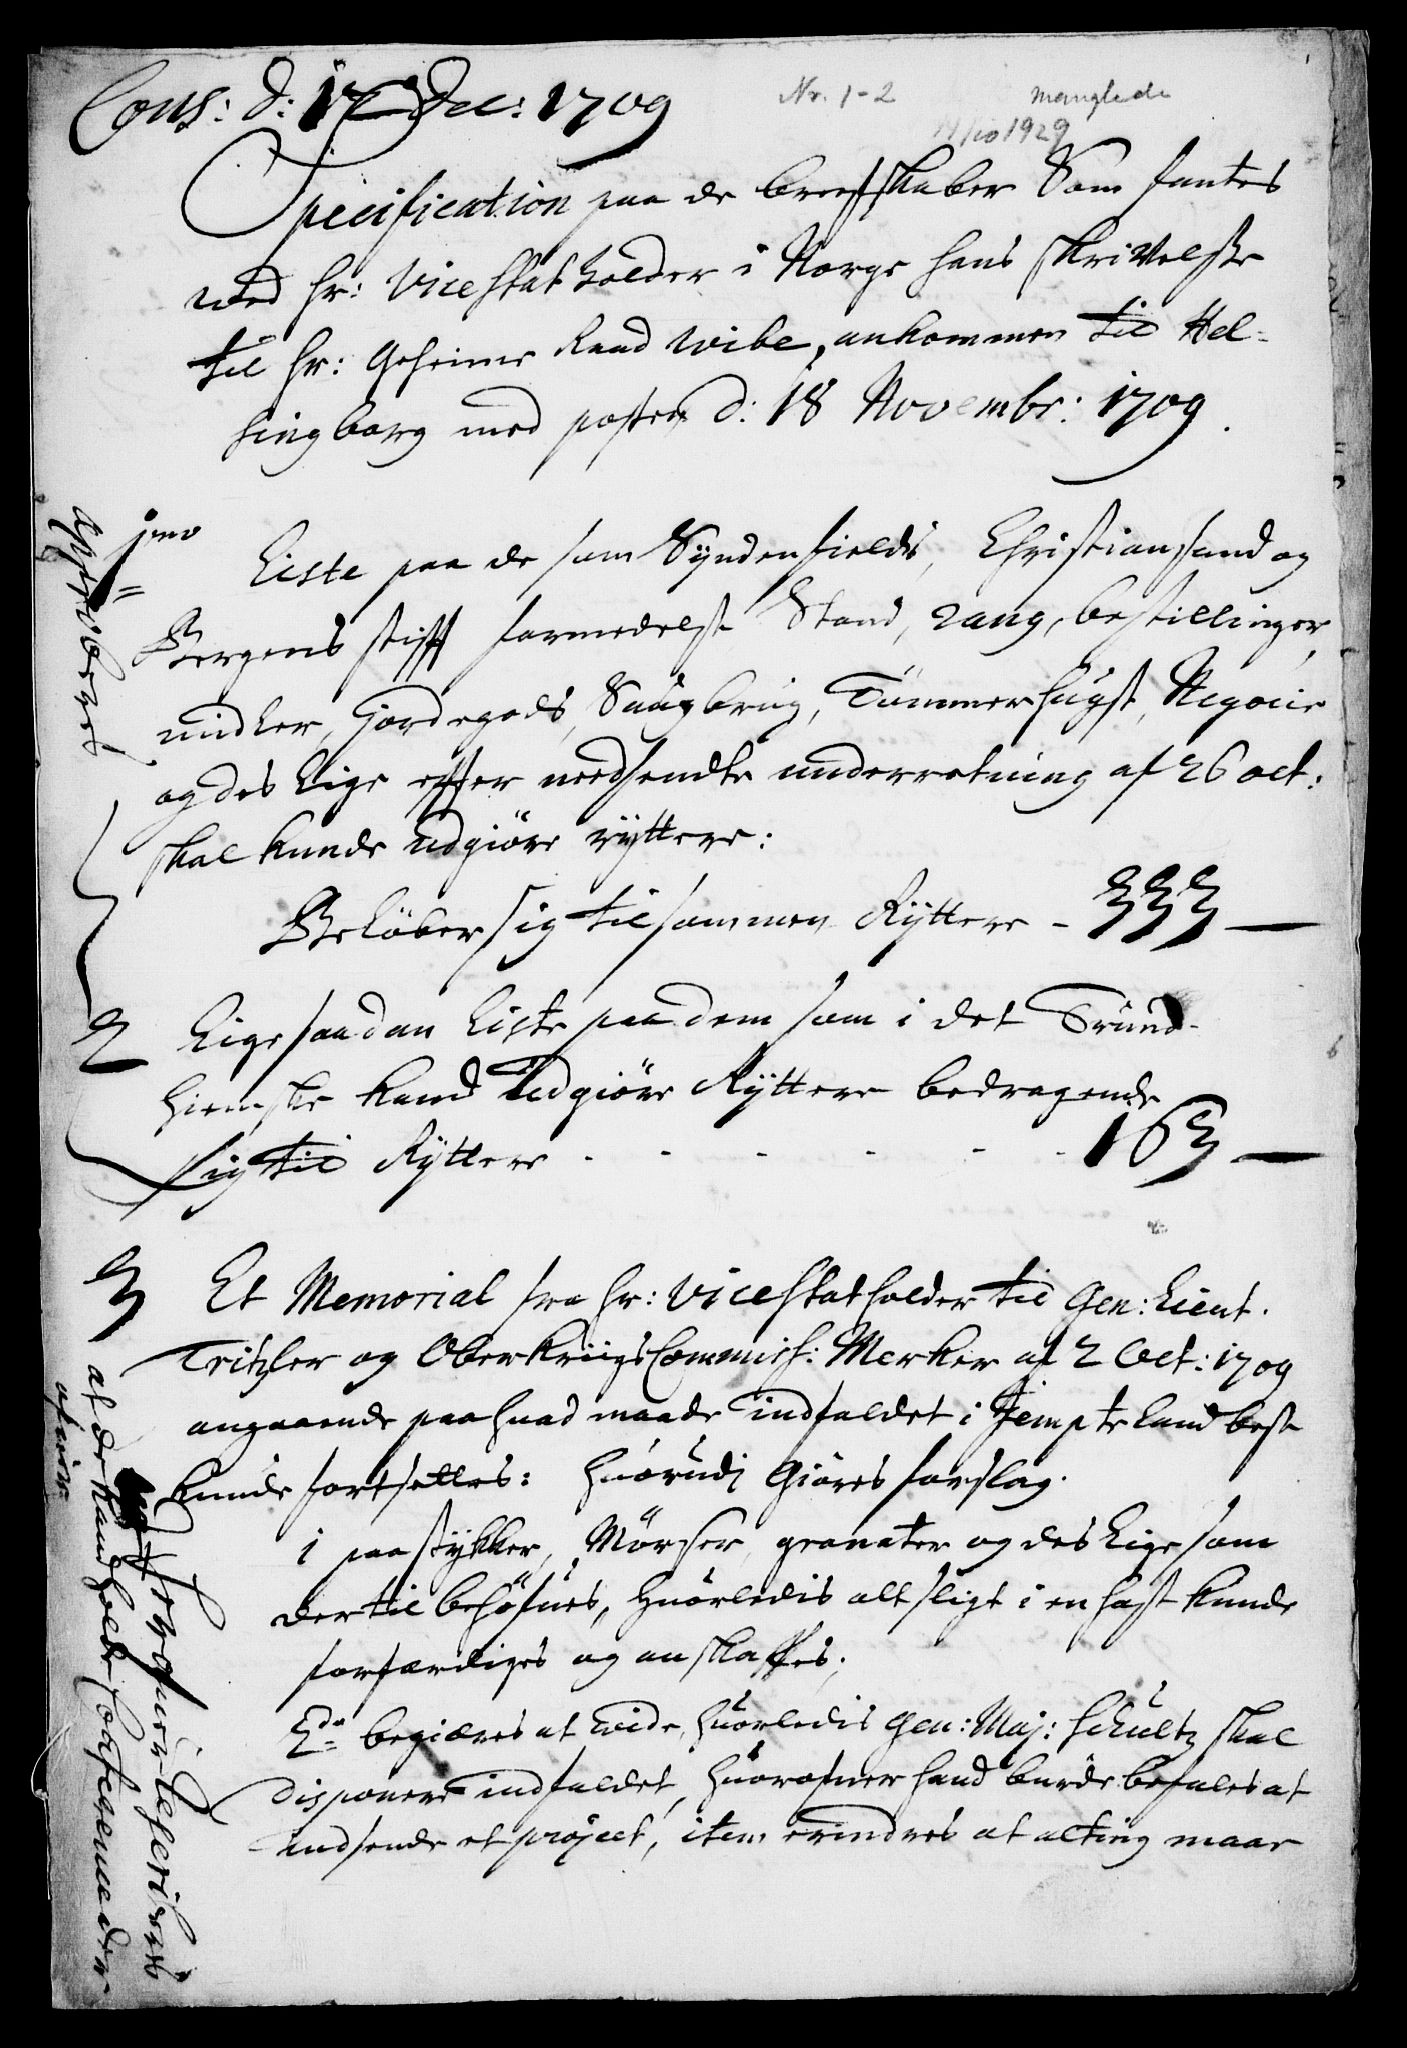 Cons: d: 17 Dec: 1709
Nr. 1-2 manglede
/10 1929
Specification paa de brefskaber Som fantes
ved hr: Vice Statholder i Norge hans skrivelse
til hr: Geheime Raad Wibe, ankommen til Hel-
singborg med posten d: 18 Novembr: 1709.
1mo Liste paa de som Syndenfields, Christiansand og
Bergens stifft formedelst Stand, rang, bestillinger,
midler, Jordegods, Saugbrug, Tømmerhugst, Negocie
og des Lige efter nedsendte underretning af 26 oct:
skal kunde Udgiøre ryttere:
Beløber sig tilsammen Ryttere - 333 —
2 Lige saadan Liste paa dem som i det Trund-
hiemske kand Udgiøre Ryttere bedragende
sig til Ryttere - - - - - - 163 —
3 Et Memorial fra hr: Vice Statholder til Gen: Lieut.
Tritzler og OberkriigsCommiss: Merker af 2 Oct: 1709
angaaende paa huad maade indfaldet i Jempteland best
kunde fortsettes: huorudj Giøres forslag.
1 paa stykker, Mørser, granater og des Lige som
der til behøfues, huorledis alt sligt i en hast kunde
forfærdiges og anskaffes;
2do begiæres at vide, huorledis Gen: Maj: Schultz skal
disponere indfaldet, huorofuer hand burde befales at
indsende et project, item erindres at alting maae
af de kand holde Conference der
ofuer